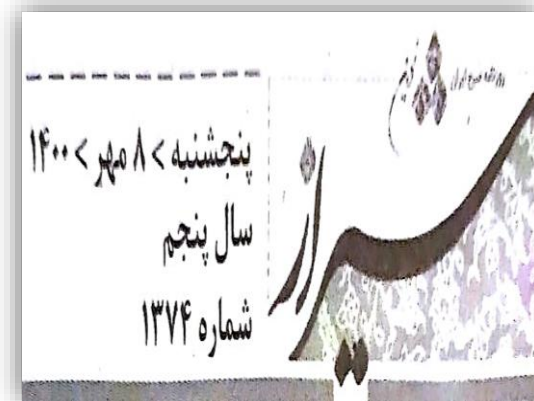 روزنامه صبح ایران
شیراز
نوین
پنجشنبه > ۸ مهر > ۱۴۰۰
سال پنجم
شماره ۱۳۷۴